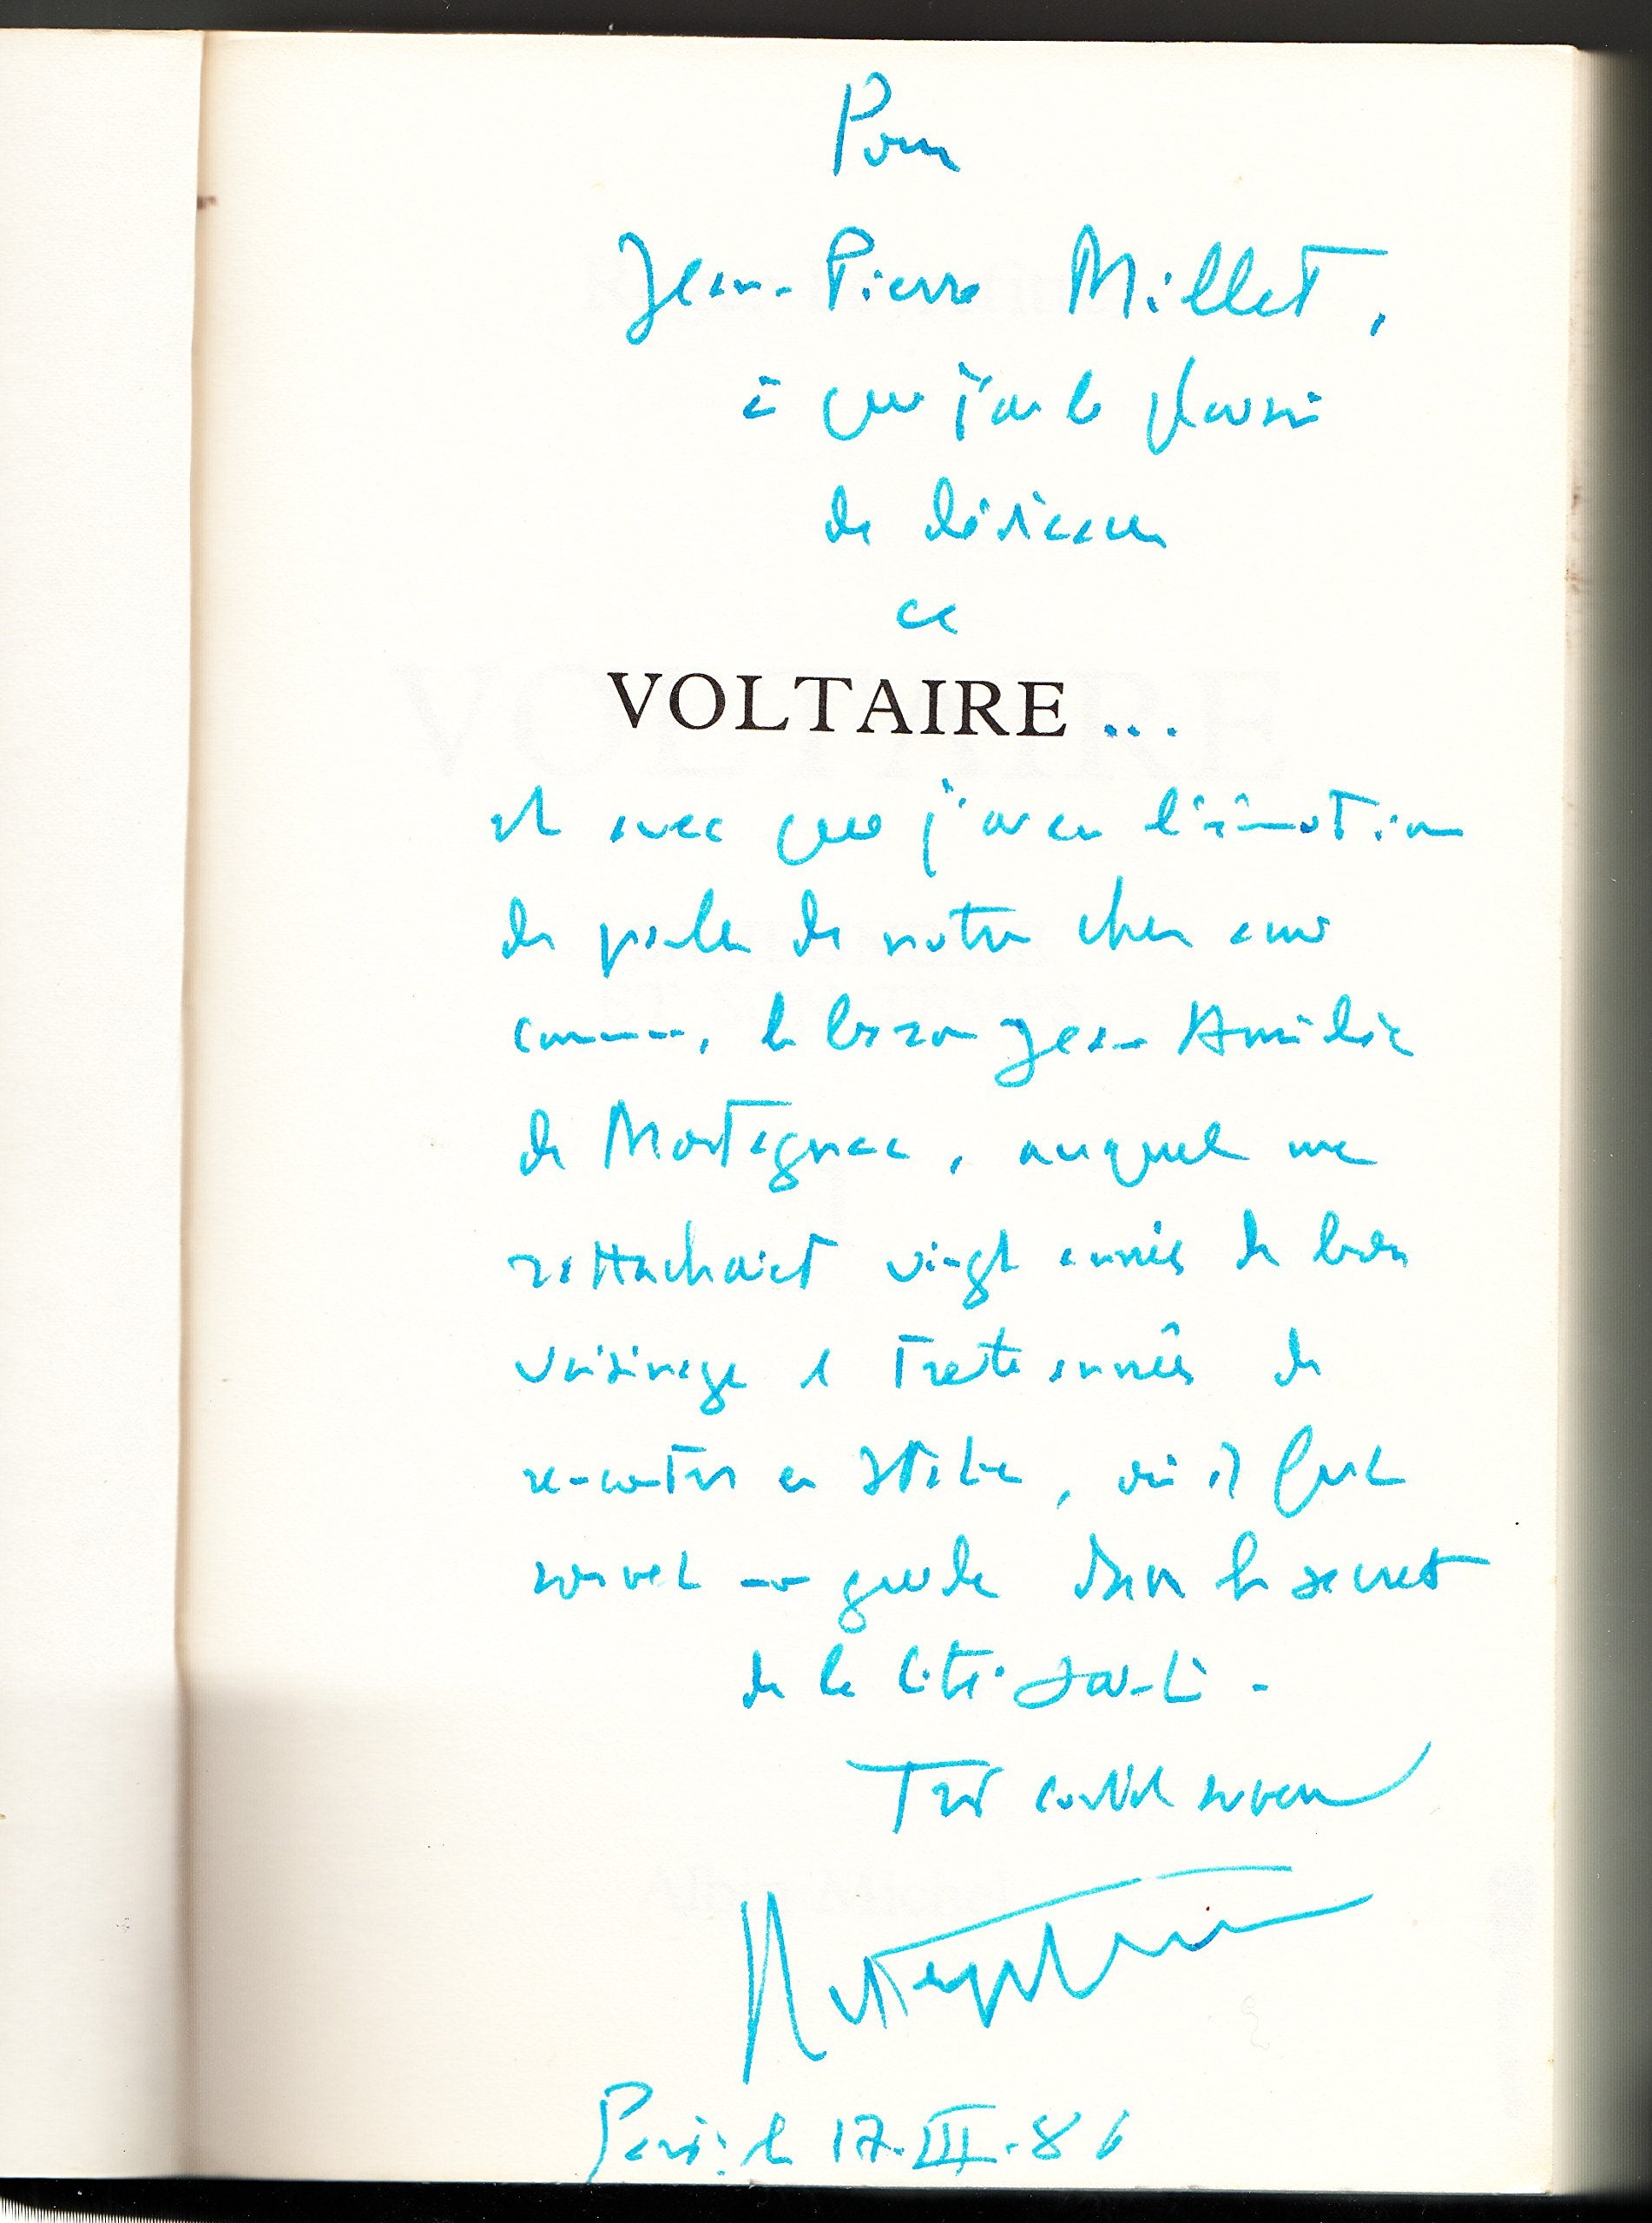 Pour
Jean-Pierre Millet,
à qui j'ai le plaisir
de dédicacer
ce
VOLTAIRE ...
et avec qui j'ai eu l'émotion
de parler de notre cher ami
commun, le baron Jean Amédée
de Mortagnac, auquel me
rattachaient vingt années de bon
voisinage et trente années de
rencontres en Italie, où il fut
souvent mon guide dans les secrets
de la
Très cordial souvenir
Paris, le 17.III.86